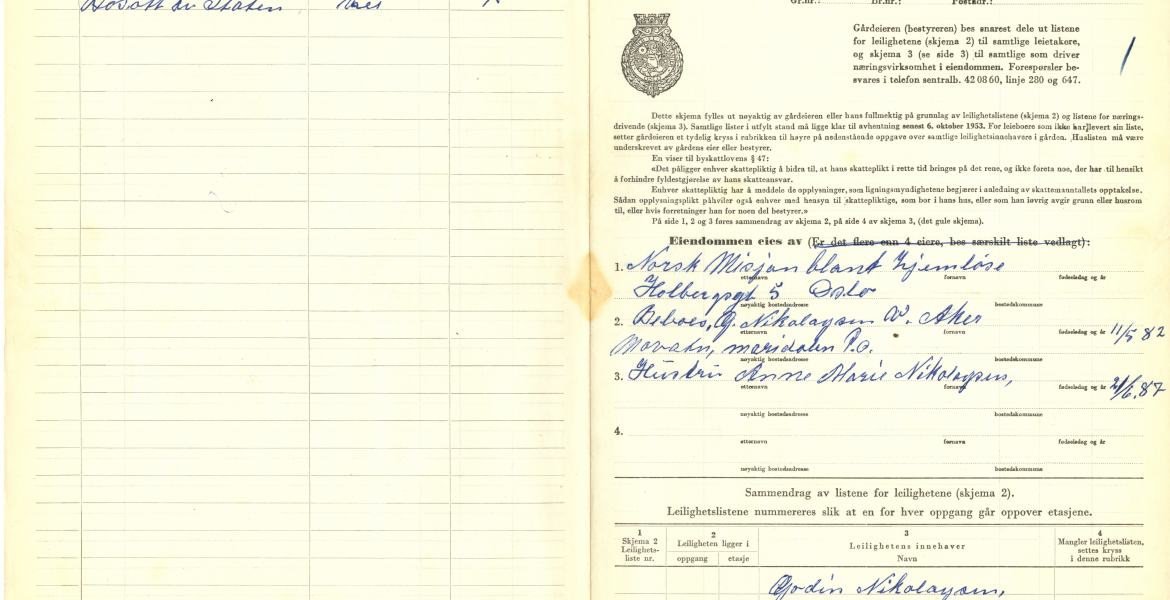 Bosatt av Staten
Gr.nr.: Br.nr.: Postadr.:
Gårdeieren (bestyreren) bes snarest dele ut listene
for leilighetene (skjema 2) til samtlige leietakere,
og skjema 3 (se side 3) til samtlige som driver
næringsvirksomhet i eiendommen. Forespørsler be-
svares i telefon sentralb. 42 08 60, linje 280 og 647.
1
Dette skjema fylles ut nøyaktig av gårdeieren eller hans fullmektig på grunnlag av leilighetslistene (skjema 2) og listene for nærings-
drivende (skjema 3). Samtlige lister i utfylt stand må ligge klar til avhentning senest 6. oktober 1953. For leieboere som ikke har levert sin liste,
setter gårdeieren et tydelig kryss i rubrikken til høyre på nedenstående oppgave over samtlige leilighetsinnehavere i gården. Huslisten må være
underskrevet av gårdens eier eller bestyrer.
En viser til byskattlovens § 47:
«Det påligger enhver skattepliktig å bidra til, at hans skatteplikt i rette tid bringes på det rene, og ikke foreta noe, der har til hensikt
å forhindre fyldestgjørelse av hans skatteansvar.
Enhver skattepliktig har å meddele de opplysninger, som ligningsmyndighetene begjærer i anledning av skattemanntallets opptakelse.
Sådan opplysningsplikt påhviler også enhver med hensyn til skattepliktige, som bor i hans hus, eller som han iøvrig avgir grunn eller husrom
til, eller hvis forretninger han for noen del bestyrer.»
På side 1, 2 og 3 føres sammendrag av skjema 2, på side 4 av skjema 3, (det gule skjema).
Eiendommen eies av (Er det flere enn 4 eiere, bes særskilt liste vedlagt):
1. Norsk Misjon blant hjemløse
etternavn fornavn fødselsdag og år
Holbergsgt 5 Oslo
nøyaktig bostedsadresse bostedskommune
2. Beboes, G. Nikolaysen V. Aker
etternavn fornavn fødselsdag og år 11/5 82
Movatn, maridalen P.o.
nøyaktig bostedsadresse bostedskommune
3. Hustru Anne Marie Nikolaysen,
etternavn fornavn fødselsdag og år 21/6.87
nøyaktig bostedsadresse bostedskommune
4.
etternavn fornavn fødselsdag og år
nøyaktig bostedsadresse bostedskommune
Sammendrag av listene for leilighetene (skjema 2).
Leilighetslistene nummereres slik at en for hver oppgang går oppover etasjene.
1 2 3 4
Skjema 2 Leiligheten ligger i Leilighetens innehaver Mangler leilighetslisten,
Leilighets- settes kryss
liste nr. oppgang etasje Navn i denne rubrikk
Godin Nikolaysen,